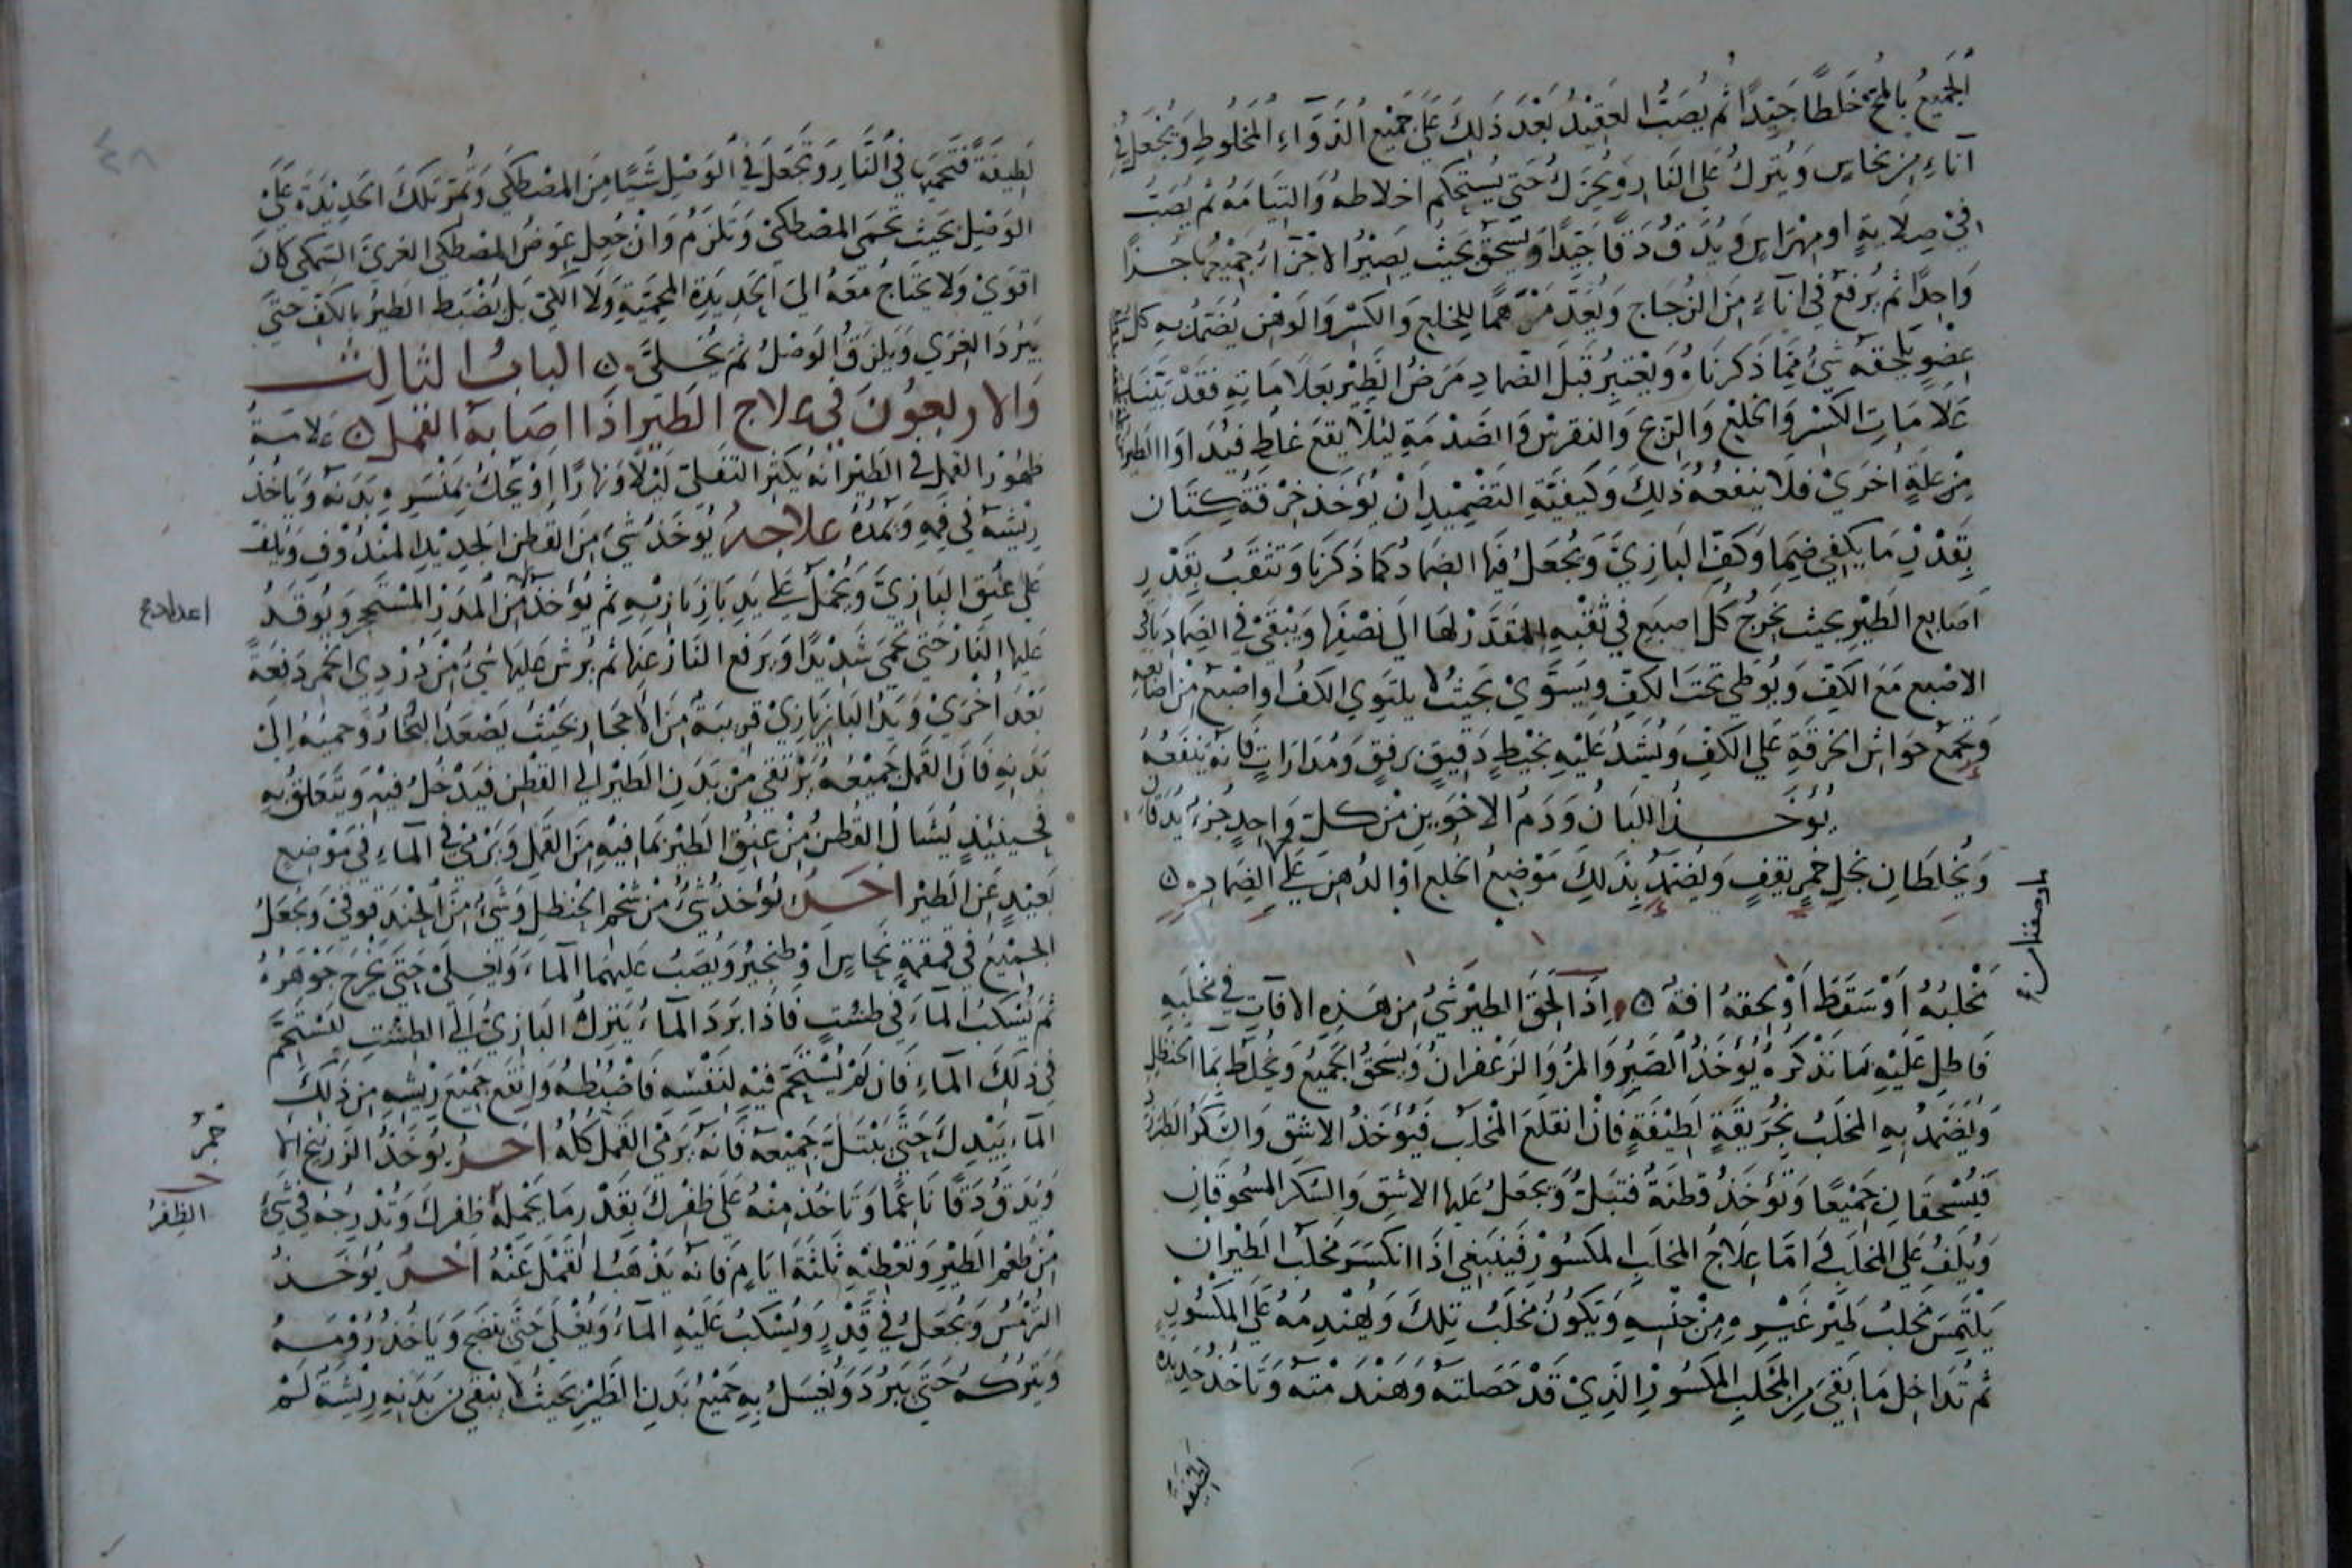 الجميع بالمخ خلطا جيدا ثم يصب العقيد بعد ذلك على جميع الدواء المخلوط ويجعل في
آناء من نحاس ويترك على النار ويحرك حتى يستحكم اخلاطه والتيامه ثم يصب
في صلاية او مهراس ويدق دقا جيدا ويسحق بحيث يصير الاجزاء جميعها جزا
واحدا ثم يرفع في اناء من الزجاج ويعد مرهما للخلع والكسر والوهن يضمد به كل
عضو يلحقه شئ مما ذكرناه ويعتبر قبل الضماد مرض الطير بعلاماته فقد بينا
علامات الكسر والخلع والريح والنقرس والصدمة ليلا يقع غلط فيداوا الطير
من علة اخرى فلا ينفعه ذلك وكيفية التضميد ان يؤخذ خرقة كتان
بقدر ما يكفي ضما وكف البازي ويجعل فيها الضماد كما ذكرنا وتثقب بقدر
اصابع الطير بحيث يخرج كل اصبع في ثقبه المقدر لها الى نصفها ويبقى في الضماد باقي
الاصبع مع الكف ويوطى تحت الكف ويسوى بحيث لا يلتوي الكف او اصبع من اصابعه
وتجمع حواشي الخرقة على الكف ويشد عليه بخيط دقيق برفق ومدارات فانه ينفعه
يؤخذ اللبان ودم الاخوين من كل واحد جزء يدقان
ويخلطان بخل خمر يقف ويضمد بذلك موضع الخلع او الدهن على الضماد
مخلبه او سقط او لحقه افة واذا لحق الطير شئ من هذه الافات في مخلبه
فاطل عليه ما نذكره يؤخذ الصبر والمر والزعفران ويسحق الجميع ويخلط بما الحنظل
ويضمد به المخلب بخريقة لطيفة فان انقلع المخلب فيؤخذ الاشق والسكر الطبرزد
فيسحقان جميعا وتؤخذ قطنة فتبل ويجعل عليها الاشق والسكر المسحوقان
ويلف على المخلب فاما علاج المخلب المكسور فينبغي اذا انكسر مخلب الطير ان
يلتمس مخلب طير غيره من جنسه ويكون مخلب تلك ويهندمه على المكسور
ثم تداخل ما بقى من المخلب المكسور الذي قد حصلته وهندمته وتاخذ حديدة
لطيفة
لطيفة فتحميها في النار وتجعل في الوصل شيا من المصطكى وتمر تلك الحديدة على
الوصل بحيث تحمى المصطكى وتلزم وان جعل عوض المصطكى الغرى السمكى كان
اقوى ولا يحتاج معه الى الحديدة المحمية ولا الكي بل يضبط الطير بالكف حتى
يبرد الغرى ويلزق الوصل ثم يخلى الباب الثالث
والاربعون في علاج الطير اذا اصابه القمل علامة
ظهور القمل في الطير انه يكثر التفلى ليلا ونهارا او يحك بمنسره بدنه وياخذ
ريشه في فمه ويمده علاجه يؤخذ شئ من القطن الجديد المندوف ويلف
على عنق البازي ويحمل على يد بازيار بازيه ثم يؤخذ من المدر المستحجر ويوقد
عليها النار حتى تحمى شديدا ويرفع النار عنها ثم يرش عليها شئ من دردي الخمر دفعة
بعد اخرى ويد البازيار بازي قريبة من الاحجار بحيث يصعد البخار وحميه الى
بدنه فان القمل جميعه يرتقى من بدن الطير الى القطن فيدخل فيه ويتعلق به
فحينئذ يشال القطن من عنق الطير بما فيه من القمل ويرمى في الماء في موضع
بعيد عن الطير اخر يؤخذ شئ من شحم الحنظل وشئ من الحندقوقى ويجعل
الجميع في قمقمة نحاس او طنجير ويصب عليهما الماء ويغلى حتى يخرج جوهره
ثم يسكب الماء في طشت فاذا برد الماء يترك البازي الى الطشت ليستحم
في ذلك الماء فان لم يستحم فيه لنفسه فاضبطه وانقع جميع ريشه من ذلك
الماء بيدك حتى يبتل جميعه فانه يرمي القمل كله اخر يؤخذ الزرنيخ الا
ويدق دقا ناعما وتاخذ منه على ظفرك بقدر ما يحمله ظفرك وتدرجه في شئ
من طعم الطير وتعطيه ثلثة ايام فانه يذهب القمل عنه اخر يؤخذ
الترمس ويجعل في قدر ويسكب عليه الماء ويغلى حتى ينضج وياخذ رؤمه
ويتركه حتى يبرد ويغسل به جميع بدن الطير بحيث لا يبقى من بدنه ريشة لم
حمر
الظفر
٤٨